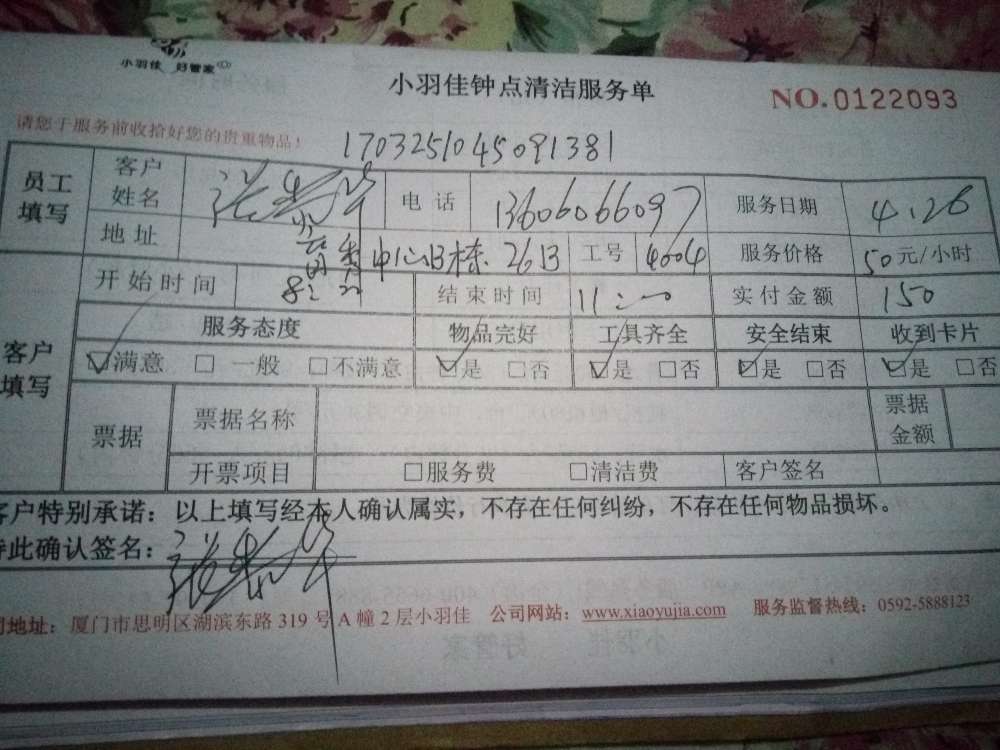 小羽佳 好管家
小羽佳钟点清洁服务单 NO.0122093
请您于服务前收拾好您的贵重物品!
1703251045091381
员工填写 客户姓名 张 电话 13606066097 服务日期 4.26
地址 中心B栋.26B 工号 4604 服务价格 50元/小时
客户填写 开始时间 8:00 结束时间 11:00 实付金额 150
服务态度 物品完好 工具齐全 安全结束 收到卡片
☑满意 □一般 □不满意 ☑是 □否 ☑是 □否 ☑是 □否 ☑是 □否
票据 票据名称 票据金额
开票项目 □服务费 □清洁费 客户签名
客户特别承诺:以上填写经本人确认属实,不存在任何纠纷,不存在任何物品损坏。
特此确认签名:张
司地址:厦门市思明区湖滨东路 319 号 A 幢 2 层小羽佳 公司网站:www.xiaoyujia.com 服务监督热线:0592-5888123